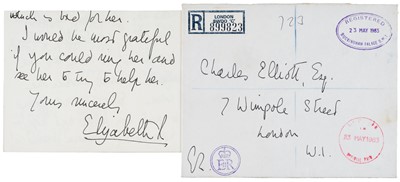 which is bad for her.
I would be most grateful
if you could ring her and
see her to try to help her.
Yours sincerely
Elizabeth R
R
LONDON
899823
723
REGISTERED
23 MAY 1963
BUCKINGHAM PALACE S.W.1
Charles Elliott, Esq.
7 Wimpole Street
London
W.1.
ER
EIIR
23 MAY 1963